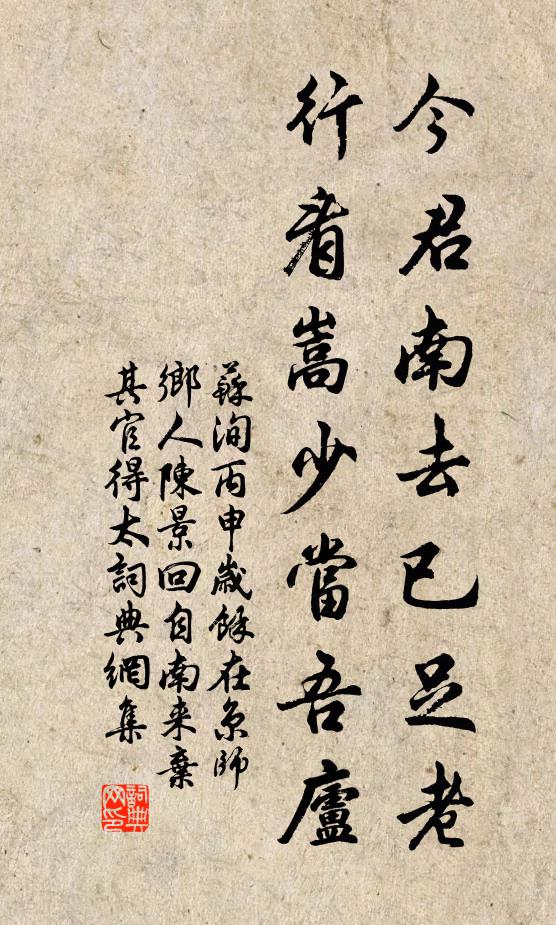 今君南去已足老
行看嵩少當吾廬
蘇洵丙申歲餘在京師
鄉人陳景回自南來棄
其官得太詞典網集
詞典
网印